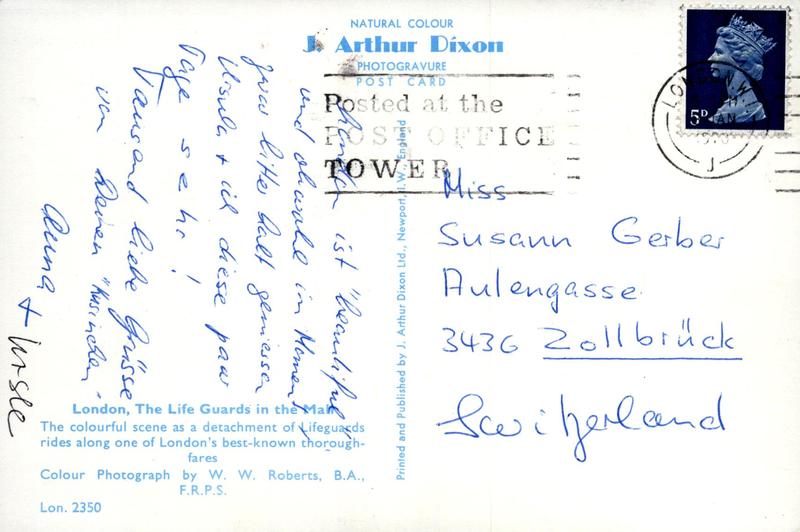 NATURAL COLOUR
J. Arthur Dixon
PHOTOGRAVURE
POST CARD
Posted at the
POST OFFICE
TOWER
LONDON. W.
JAN
J
5D
London ist "beautiful"
und obwohl im Moment
zwar bitter kalt geniessen
Ursula + ich diese paar
Tage sehr!
Tausend liebe Grüsse
von Deinen "Kusinchen"
Anna + Ursle
Miss
Susann Gerber
Aulengasse
3436 Zollbrück
Switzerland
Printed and Published by J. Arthur Dixon Ltd., Newport, I.W., England
London, The Life Guards in the Mall
The colourful scene as a detachment of Lifeguards
rides along one of London's best-known thorough-
fares
Colour Photograph by W. W. Roberts, B.A.,
F.R.P.S.
Lon. 2350